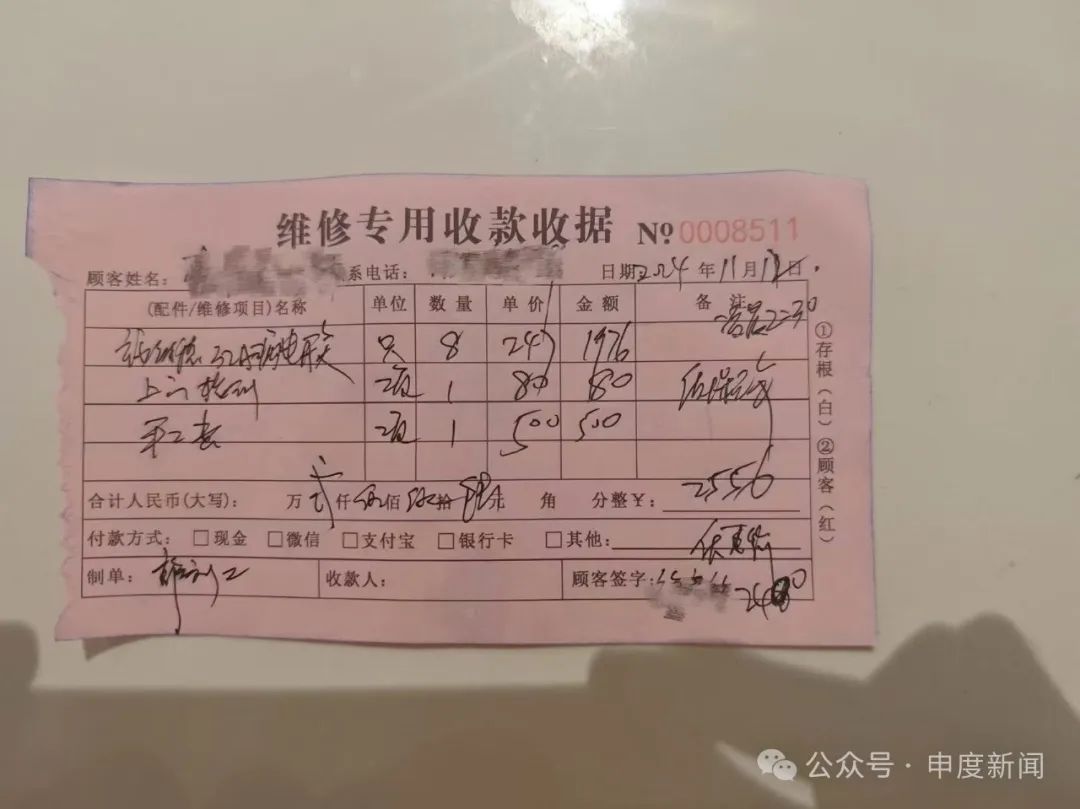 维修专用收款收据 № 0008511
顾客姓名: 系电话: 日期 2024 年 11 月 12 日
(配件/维修项目)名称 单位 数量 单价 金额 备注
只 8 247 1976
上门检测 项 1 80 80
项 1 500 500
合计人民币(大写): 万 贰 仟 伍 佰 伍 拾 陆 元 角 分整¥: 2556
付款方式: □现金 □微信 □支付宝 □银行卡 □其他:
制单: 收款人: 顾客签字:
①存根(白)②顾客(红)
公众号 · 申度新闻